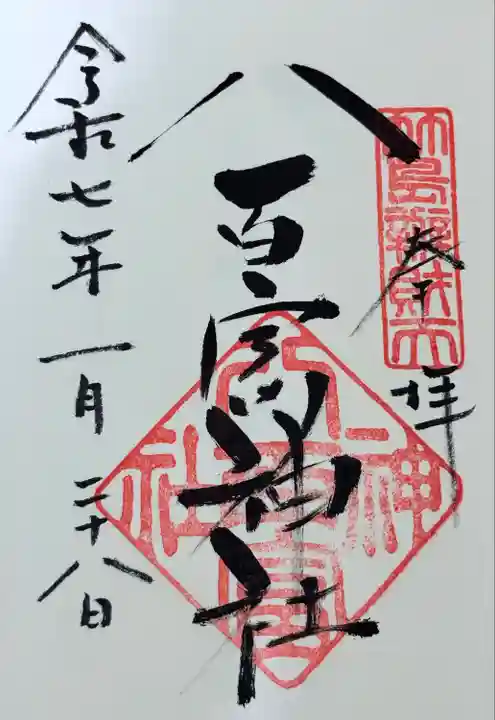 竹島辯財天
奉拝
八百富神社
八百富
神社
令和七年一月二十八日